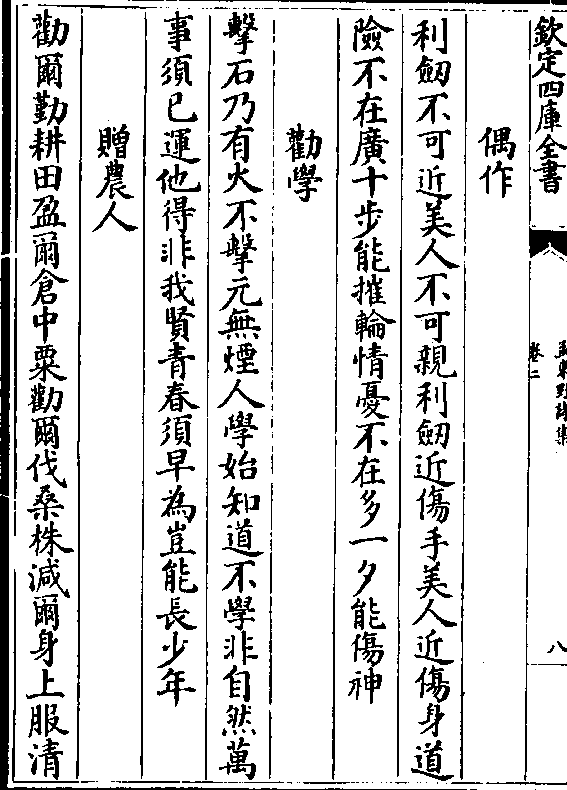 欽定四庫全書
孟東野詩集
卷二
八
偶作
利劒不可近美人不可親利劒近傷手美人近傷身道
險不在廣十步能摧輪情憂不在多一夕能傷神
勸學
擊石乃有火不擊元無煙人學始知道不學非自然萬
事須已運他得非我賢青春須早為豈能長少年
贈農人
勸爾勤耕田盈爾倉中粟勸爾伐桑株減爾身上服清